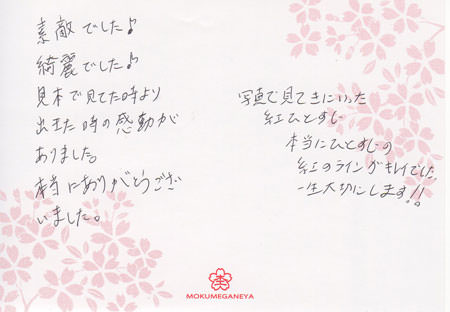 素敵でした♪
綺麗でした♪
見本で見てた時より
出来た時の感動が
ありました。
本当にありがとうござ
いました。
写真で見てきにいった
紅ひとすじ
本当にひとすじの
紅のラインがキレイでした
一生大切にします!!
MOKUMEGANEYA